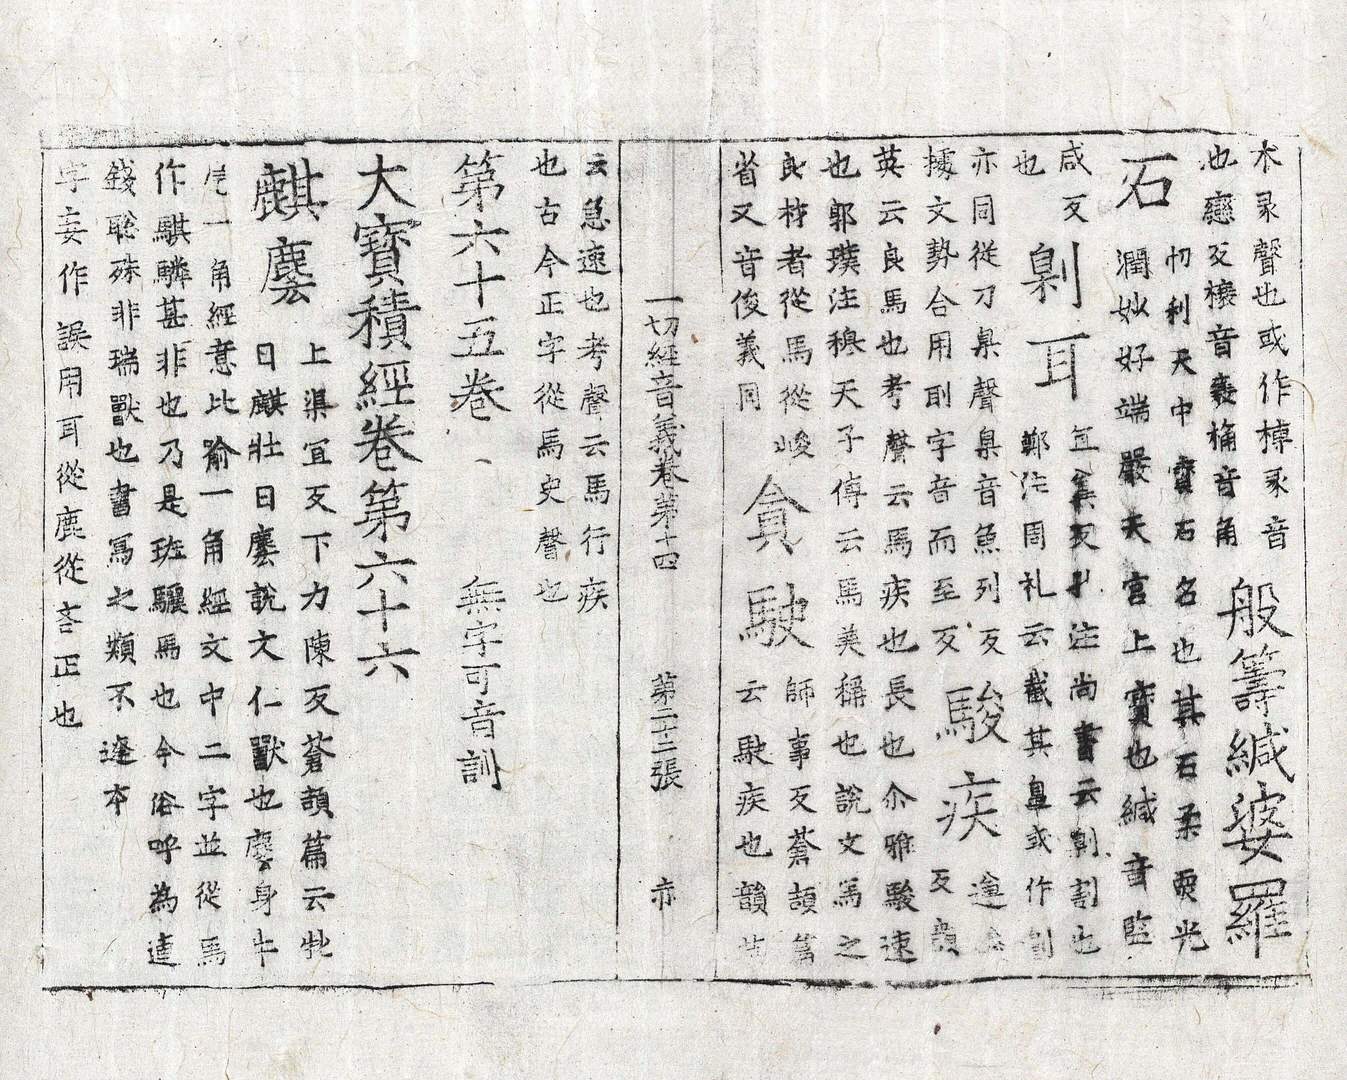 木彔聲也或作椁彔音
也戀反櫰音褭桷音角
般籌緘婆羅
石
忉利天中寶石名也其石柔耎光
潤妙好端嚴天宮上寶也緘音監
咸反
剠耳
冝蓺反孔注尚書云剠割也
鄭注周礼云截其鼻或作劓
也
亦同從刀臬聲臬音魚列反
據文勢合用刵字音而至反
駿疾
遵
反韻
英云良馬也考聲云馬疾也長也尒雅駿速
也郭璞注穆天子傳云馬美稱也說文馬之
良材者從馬從峻
省又音俊義同
貪駛
師事反蒼頡篇
云駛疾也韻
一切經音義卷第十四 第二十二張 亦
云急速也考聲云馬行疾
也古今正字從馬史聲也
第六十五卷 無字可音訓
大寶積經卷第六十六
麒麐
上渠宜反下力陳反蒼頡篇云牝
曰麒壯曰麐說文仁獸也麐身牛
尾一角經意比喻一角經文中二字並從馬
作騏驎甚非也乃是班驪馬也今俗呼為連
錢驄殊非瑞獸也書寫之類不達本
字妄作誤用耳從鹿從吝正也